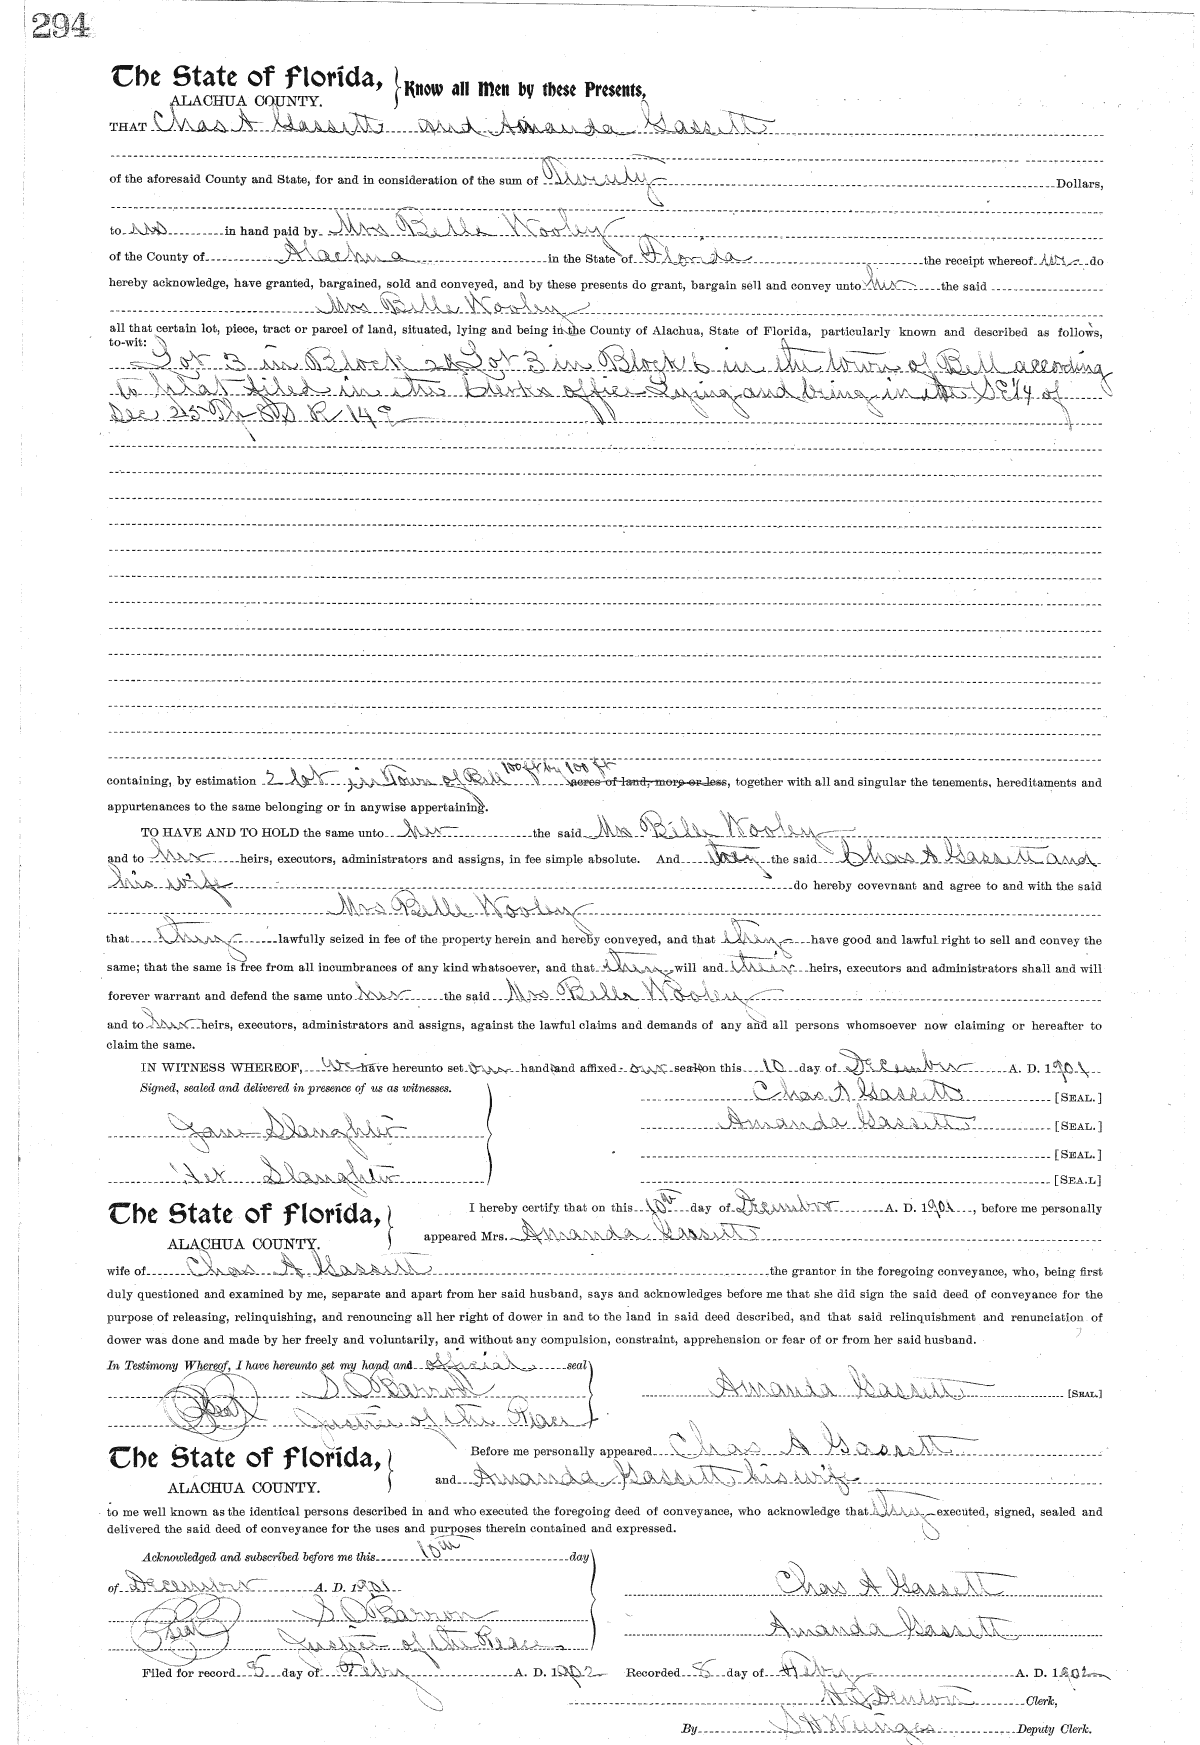 294
The State of Florida, Know all Men by these Presents,
ALACHUA COUNTY.
THAT Chas A Gassett and Amanda Gassett
of the aforesaid County and State, for and in consideration of the sum of Twenty Dollars,
to us in hand paid by Mrs Bille Wooley
of the County of Alachua in the State of Florida the receipt whereof we do
hereby acknowledge, have granted, bargained, sold and conveyed, and by these presents do grant, bargain sell and convey unto her the said
Mrs Bille Wooley
all that certain lot, piece, tract or parcel of land, situated, lying and being in the County of Alachua, State of Florida, particularly known and described as follows,
to-wit:
Lot 3 in Block 2 & Lot 3 in Block 6 in the town of Bell according
to Plat filed in the Clerks office Lying and being in the SE1/4 of
Sec 25 Tp 8 S R 14 E
containing, by estimation 2 lot in Town of Bell 100 ft by 100 ft acres of land, more or less, together with all and singular the tenements, hereditaments and
appurtenances to the same belonging or in anywise appertaining.
TO HAVE AND TO HOLD the same unto her the said Mrs Bille Wooley
and to her heirs, executors, administrators and assigns, in fee simple absolute. And they the said Chas A Gassett and
his wife do hereby covevnant and agree to and with the said
Mrs Bille Wooley
that they lawfully seized in fee of the property herein and hereby conveyed, and that they have good and lawful right to sell and convey the
same; that the same is free from all incumbrances of any kind whatsoever, and that they will and their heirs, executors and administrators shall and will
forever warrant and defend the same unto her the said Mrs Bille Wooley
and to her heirs, executors, administrators and assigns, against the lawful claims and demands of any and all persons whomsoever now claiming or hereafter to
claim the same.
IN WITNESS WHEREOF, we have hereunto set our hand and affixed our seal on this 10 day of December A. D. 1901
Signed, sealed and delivered in presence of us as witnesses. Chas A Gassett [SEAL.]
Jane Slaughter Amanda Gassett [SEAL.]
[SEAL.]
Slaughter [SEA.L]
The State of Florida, I hereby certify that on this 10th day of December A. D. 1901, before me personally
ALACHUA COUNTY. appeared Mrs. Amanda Gassett
wife of Chas A Gassett the grantor in the foregoing conveyance, who, being first
duly questioned and examined by me, separate and apart from her said husband, says and acknowledges before me that she did sign the said deed of conveyance for the
purpose of releasing, relinquishing, and renouncing all her right of dower in and to the land in said deed described, and that said relinquishment and renunciation of
dower was done and made by her freely and voluntarily, and without any compulsion, constraint, apprehension or fear of or from her said husband.
In Testimony Whereof, I have hereunto set my hand and official seal
S D Barron Amanda Gassett [SEAL.]
Seal Justice of the Peace
The State of Florida, Before me personally appeared Chas A Gassett
ALACHUA COUNTY. and Amanda Gassett his wife
to me well known as the identical persons described in and who executed the foregoing deed of conveyance, who acknowledge that they executed, signed, sealed and
delivered the said deed of conveyance for the uses and purposes therein contained and expressed.
Acknowledged and subscribed before me this 10th day
of December A. D. 1901 Chas A Gassett
S D Barron
Seal Justice of the Peace Amanda Gassett
Filed for record 8 day of Feby A. D. 1902 Recorded 8 day of Feby A. D. 1902
Denton Clerk,
By Deputy Clerk.